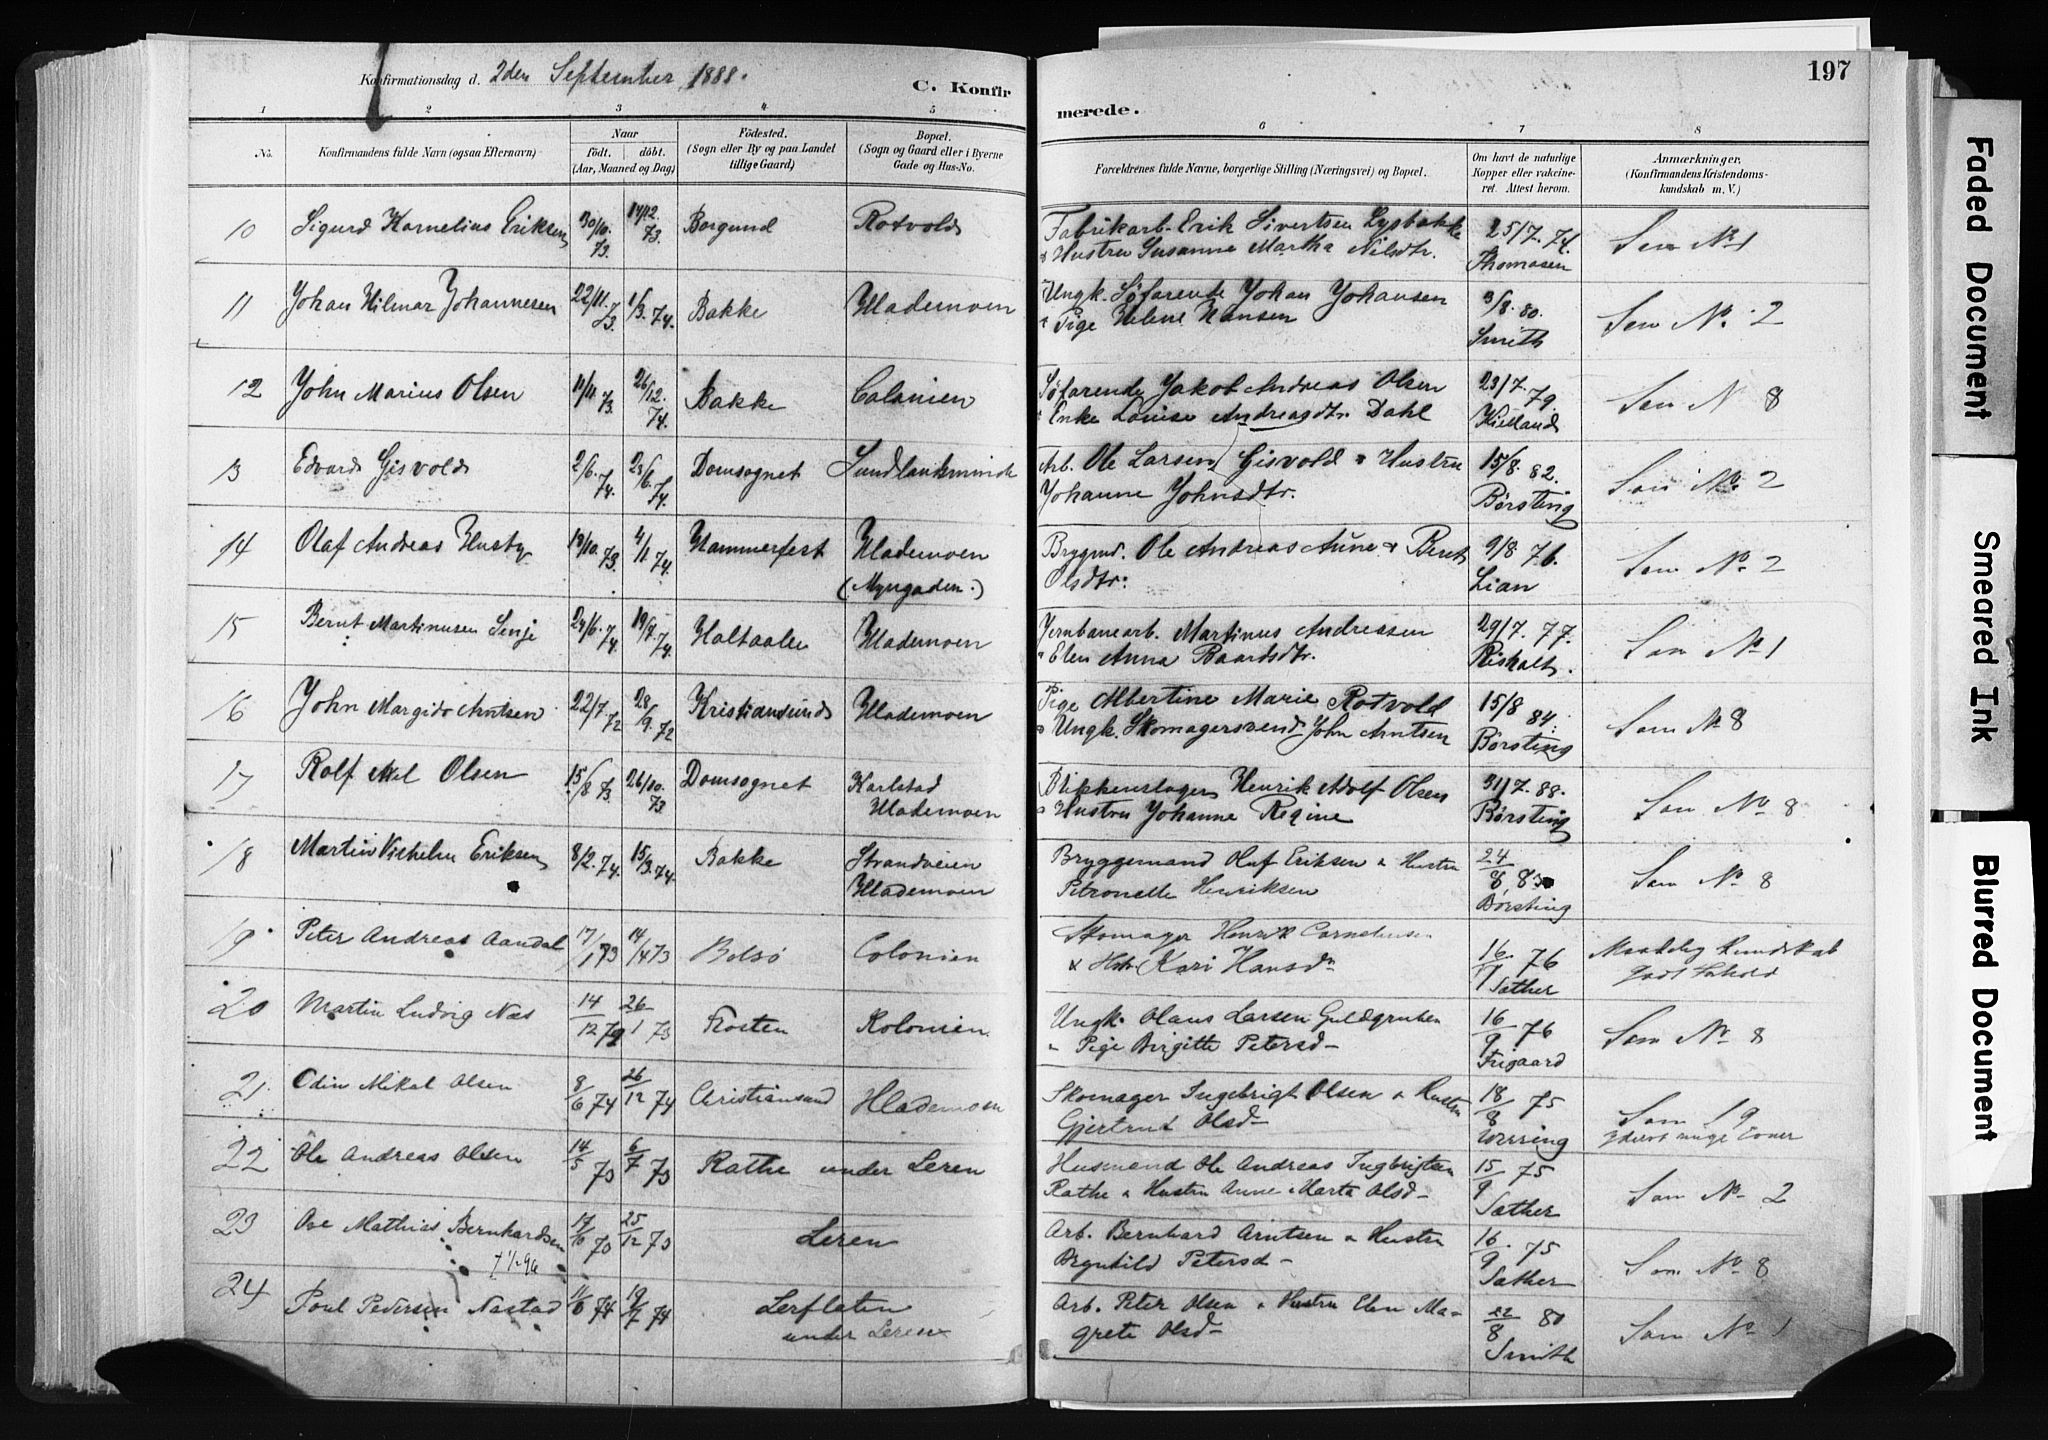 Konfirmationsdag d. 2den September 1888.
C. Konfir
merede.
197
1 2 3 4 5 6 7 8
No.
Konfirmandens fulde Navn (ogsaa Efternavn)
Naar
født. døbt.
(Aar, Maaned og Dag)
Fødested.
(Sogn eller By og paa Landet
tillige Gaard)
Bopæl.
(Sogn og Gaard eller i Byerne
Gade og Hus-No.
Forældrenes fulde Navne, borgerlige Stilling (Næringsvei) og Bopæl.
Om havt de naturlige
Kopper eller vakcine-
ret. Attest herom.
Anmærkninger,
(Konfirmandens Kristendoms-
kundskab m. V.)
10 Sigurd Kornelius Eriksen 30/10. 73. 14/12. 73. Borgund Rotvold Fabrikarb. Erik Sivertsen Lysbakke 25/7. 74. Som No 1
& Hustru Susanne Martha Nilsdtr. Thomasen
11 Johan Hilmar Johannesen 22/11. 73. 1/3. 74. Bakke Hlademoen Ungk. Søfarende Johan Johansen 3/8. 80. Som No. 2
Pige Helene Hansen Smith
12 John Marius Olsen 73. 26/12. 74. Bakke Colonien Søfarende Jakob Andreas Olsen 23/7. 79. Som N 8
Enke Louise Andreasdtr. Dahl Kielland
13 Edvard Gisvold 2/6. 74. 23/6. 74. Domsognet Sundlandsminde Arb. Ole Larsen Gisvold & Hustru 15/8. 82. Som No. 2
Johanne Johnsdtr. Børsting
14 Olaf Andreas Husby 19/10. 73. 4/1 74. Hammerfest Hlademoen Bryggmd. Ole Andreas Aune & Beret 9/8 76. Som No. 2
(Myrgaden.) Olsdtr. Lian
15 Bernt Martinusen Senje 24/6. 74. 19/7. 74. Holtaalen Hlademoen Jernbanearb. Martinus Andreasen 29/7. 77. Som No 1
Elen Anna Baardsdtr. Riskalt.
16 John Margido Arntsen 22/7 72 28/9. 72 Kristiansund Hlademoen Pige Albertine Marie Rotvold 15/8 84. Som No 8
Ungk. Skomagersvend John Arntsen Børsting
17 Rolf Axel Olsen 15/8 73. 26/10. 73 Domsognet Karlstad Blikkenslager Henrik Adolf Olsen 31/7. 88. Som No 8
Hlademoen Hustru Johanne Regine Børsting
18 Martin Vilhelm Eriksen 8/2. 74. 15/3. 74. Bakke Strandveien Bryggemand Oluf Eriksen & Hustru 24/8, 83 Som No 8
Hlademoen Petronelle Henriksen Børsting
19 Peter Andreas Aandal 17/1 73 14/4 73 Bolsø Colonien Skomager Henrik Corneliusen 16. 76 Maadelig Kundskab
& Hstr Kari Hansdr Sæther godt Forhold
20 Martin Ludvig Næs 14/12 26/1 73 Frosten Kolonien Ungk. Olaus Larsen Guldgruben 16/9 76 Som No 8
Pige Birgitte Petersd- Frigaard
21 Odin Mikal Olsen 8/6 74 26/12 74 Christiansund Hlademoen Skomager Ingebrigt Olsen & Hustru 18/8 75 Som 19
Gjertrud Olsd- Werring
22 Ole Andreas Olsen 14/5 73 6/7 73 Rathe under Leren Husmand Ole Andreas Ingbrigtsen 15/9 75 Som No 2
Rathe & Hustru Anne Marta Olsd- Sæther
23 Ove Mathias Bernhardsen 17/10 73 25/12 73 Leren Arb. Bernhard Arntsen & Hustru 16/9. 75 Som No 8
Brynhild Petersd- Sæther
24 Poul Pedersen Nastad 74 74 Lerflaten Arb. Peter Olsen & Hustru Elen Ma- 22/8 80 Som No 1
under Leren grete Olsd- Smith
Faded Document
Smeared Ink
Blurred Document